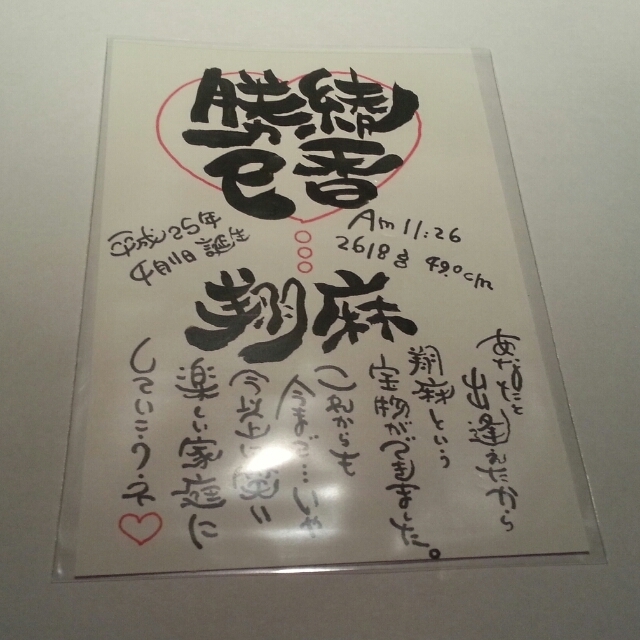 勝己
綾香
平成25年
4月11日 誕生
Am 11:26
2618g 49.0cm
翔麻
あなたと
出逢えたから
翔麻という
宝物ができました。
これからも
今まで…いや
今以上に笑い
楽しい家庭に
していこうネ♡